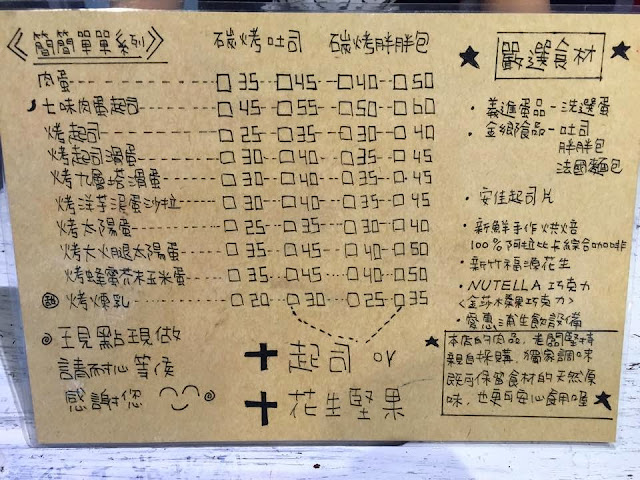 《簡簡單單系列》 碳烤吐司 碳烤胖胖包
肉蛋 □35 □45 □40 □50
七味肉蛋起司 □45 □55 □50 □60
烤起司 □25 □35 □30 □40
烤起司滑蛋 □30 □40 □35 □45
烤九層塔滑蛋 □30 □40 □35 □45
烤洋芋滑蛋沙拉 □30 □40 □35 □45
烤太陽蛋 □25 □35 □30 □40
烤火腿太陽蛋 □35 □45 □40 □50
烤蜂蜜芥末玉米蛋 □35 □45 □40 □50
烤煉乳 □20 □30 □25 □35
+起司 or
+花生堅果
現點現做
請耐心等侯
感謝您
★嚴選食材★
·義進蛋品-洗選蛋
·金鄉食品-吐司
胖胖包
法國麵包
·安佳起司片
·新鮮手作烘焙
100%阿拉比卡綜合咖啡
·新竹福源花生
·NUTELLA巧克力
<金莎榛果巧克力>
·愛惠浦生飲設備
★本店的肉品,老闆堅持
親自採購,獨家調味
既可保留食材的天然原
味,也更可安心食用喔★